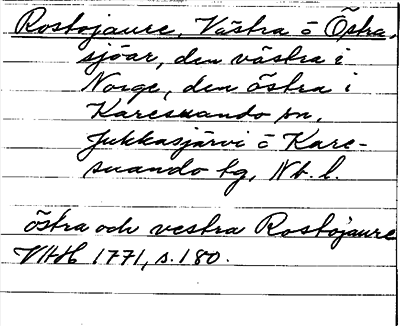 Rostojaure, Västra o Östra,
sjöar, den västra i
Norge, den östra i
Karesuando sn,
Jukkasjärvi o Kare-
suando tg, Nb. l.
östra och vestra Rostojaure
VHH 1771, s. 180.